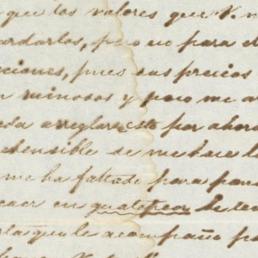 que los valores que V. m
ardarlos, pero no para el
ciones, pues sus precios
n ruinosos y poco me a
eda arreglar esto por ahora
ehensible de
me ha faltado para
caer en
las que le acompaño p